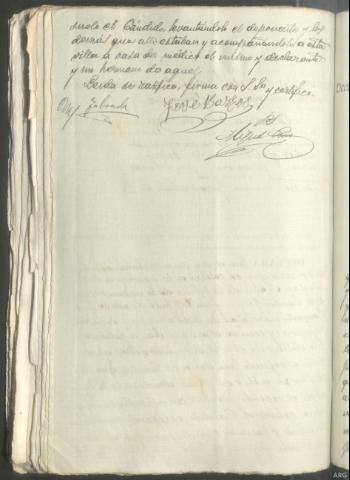 suelo el Cándido levantándole el deponente y los
demás que allí estaban y acompañándole a esta
villa a casa del médico el mismo y declarante
y un hermano de aquel
Leida se ratifica, firma con S. Sa y certifico.
José
Miguel
ARG